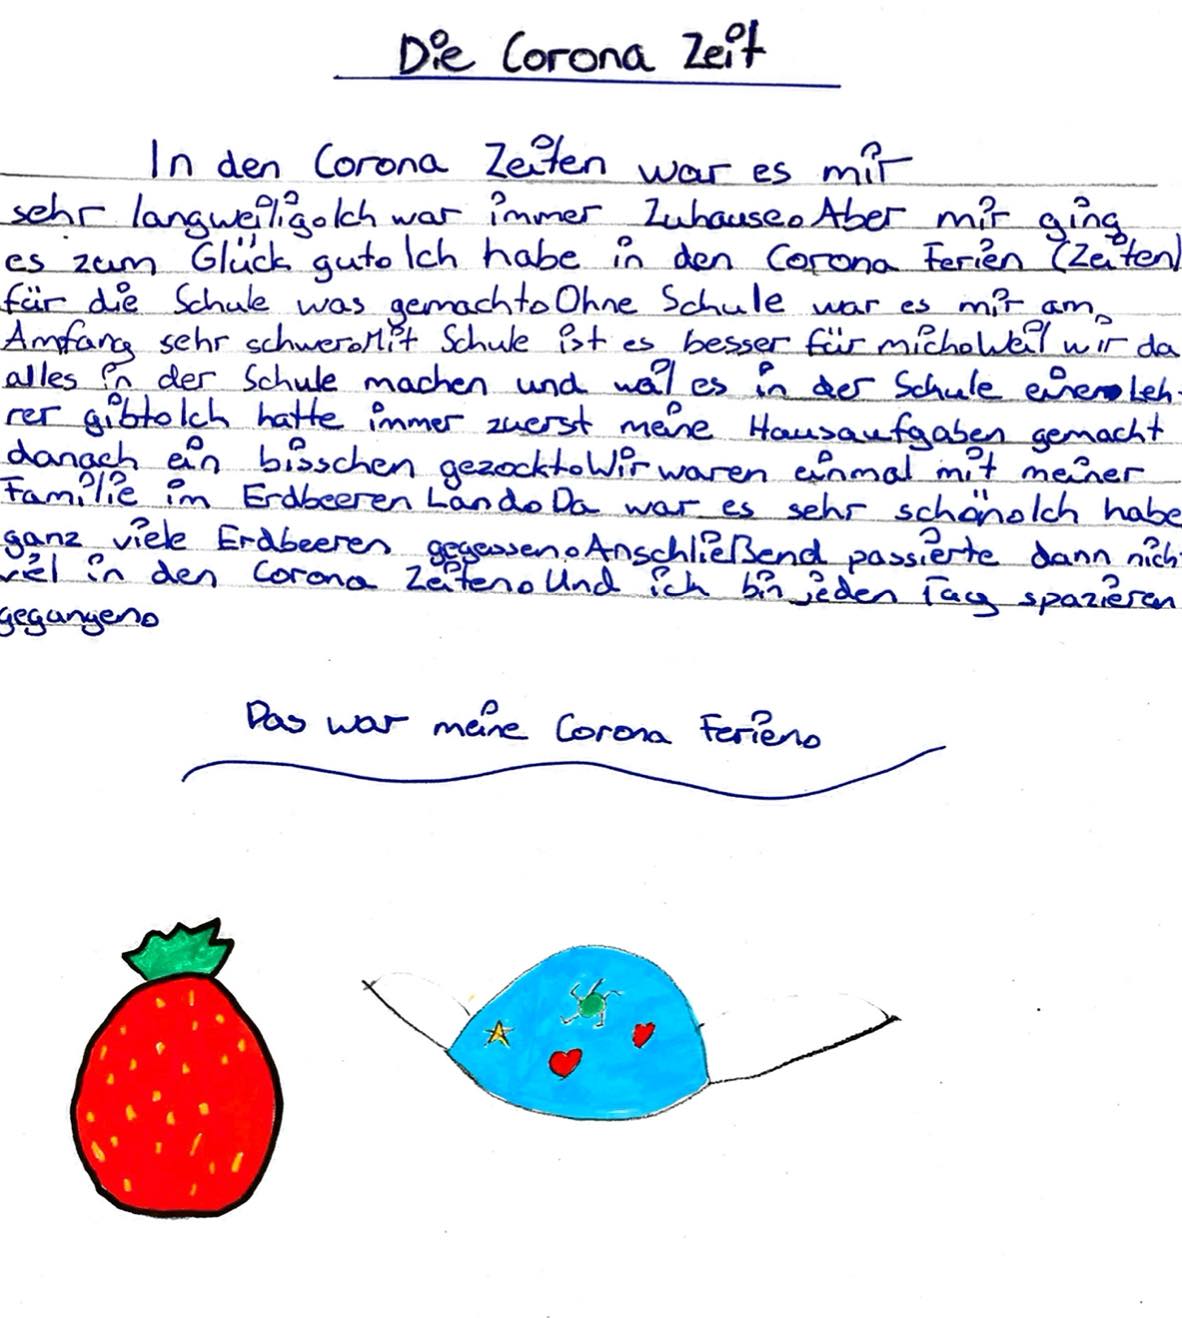 Die Corona Zeit
In den Corona Zeiten war es mir
sehr langweilig. Ich war immer Zuhause. Aber mir ging
es zum Glück gut. Ich habe in den Corona Ferien (Zeiten)
für die Schule was gemacht. Ohne Schule war es mir am
Amfang sehr schwer. Mit Schule ist es besser für mich. Weil wir da
alles in der Schule machen und weil es in der Schule einen Leh-
rer gibt. Ich hatte immer zuerst meine Hausaufgaben gemacht
danach ein bisschen gezockt. Wir waren einmal mit meiner
Familie im Erdbeeren Land. Da war es sehr schön. Ich habe
ganz viele Erdbeeren gegessen. Anschließend passierte dann nich
viel in den Corona Zeiten. Und ich bin jeden Tag spazieren
gegangen.
Das war meine Corona Ferien.